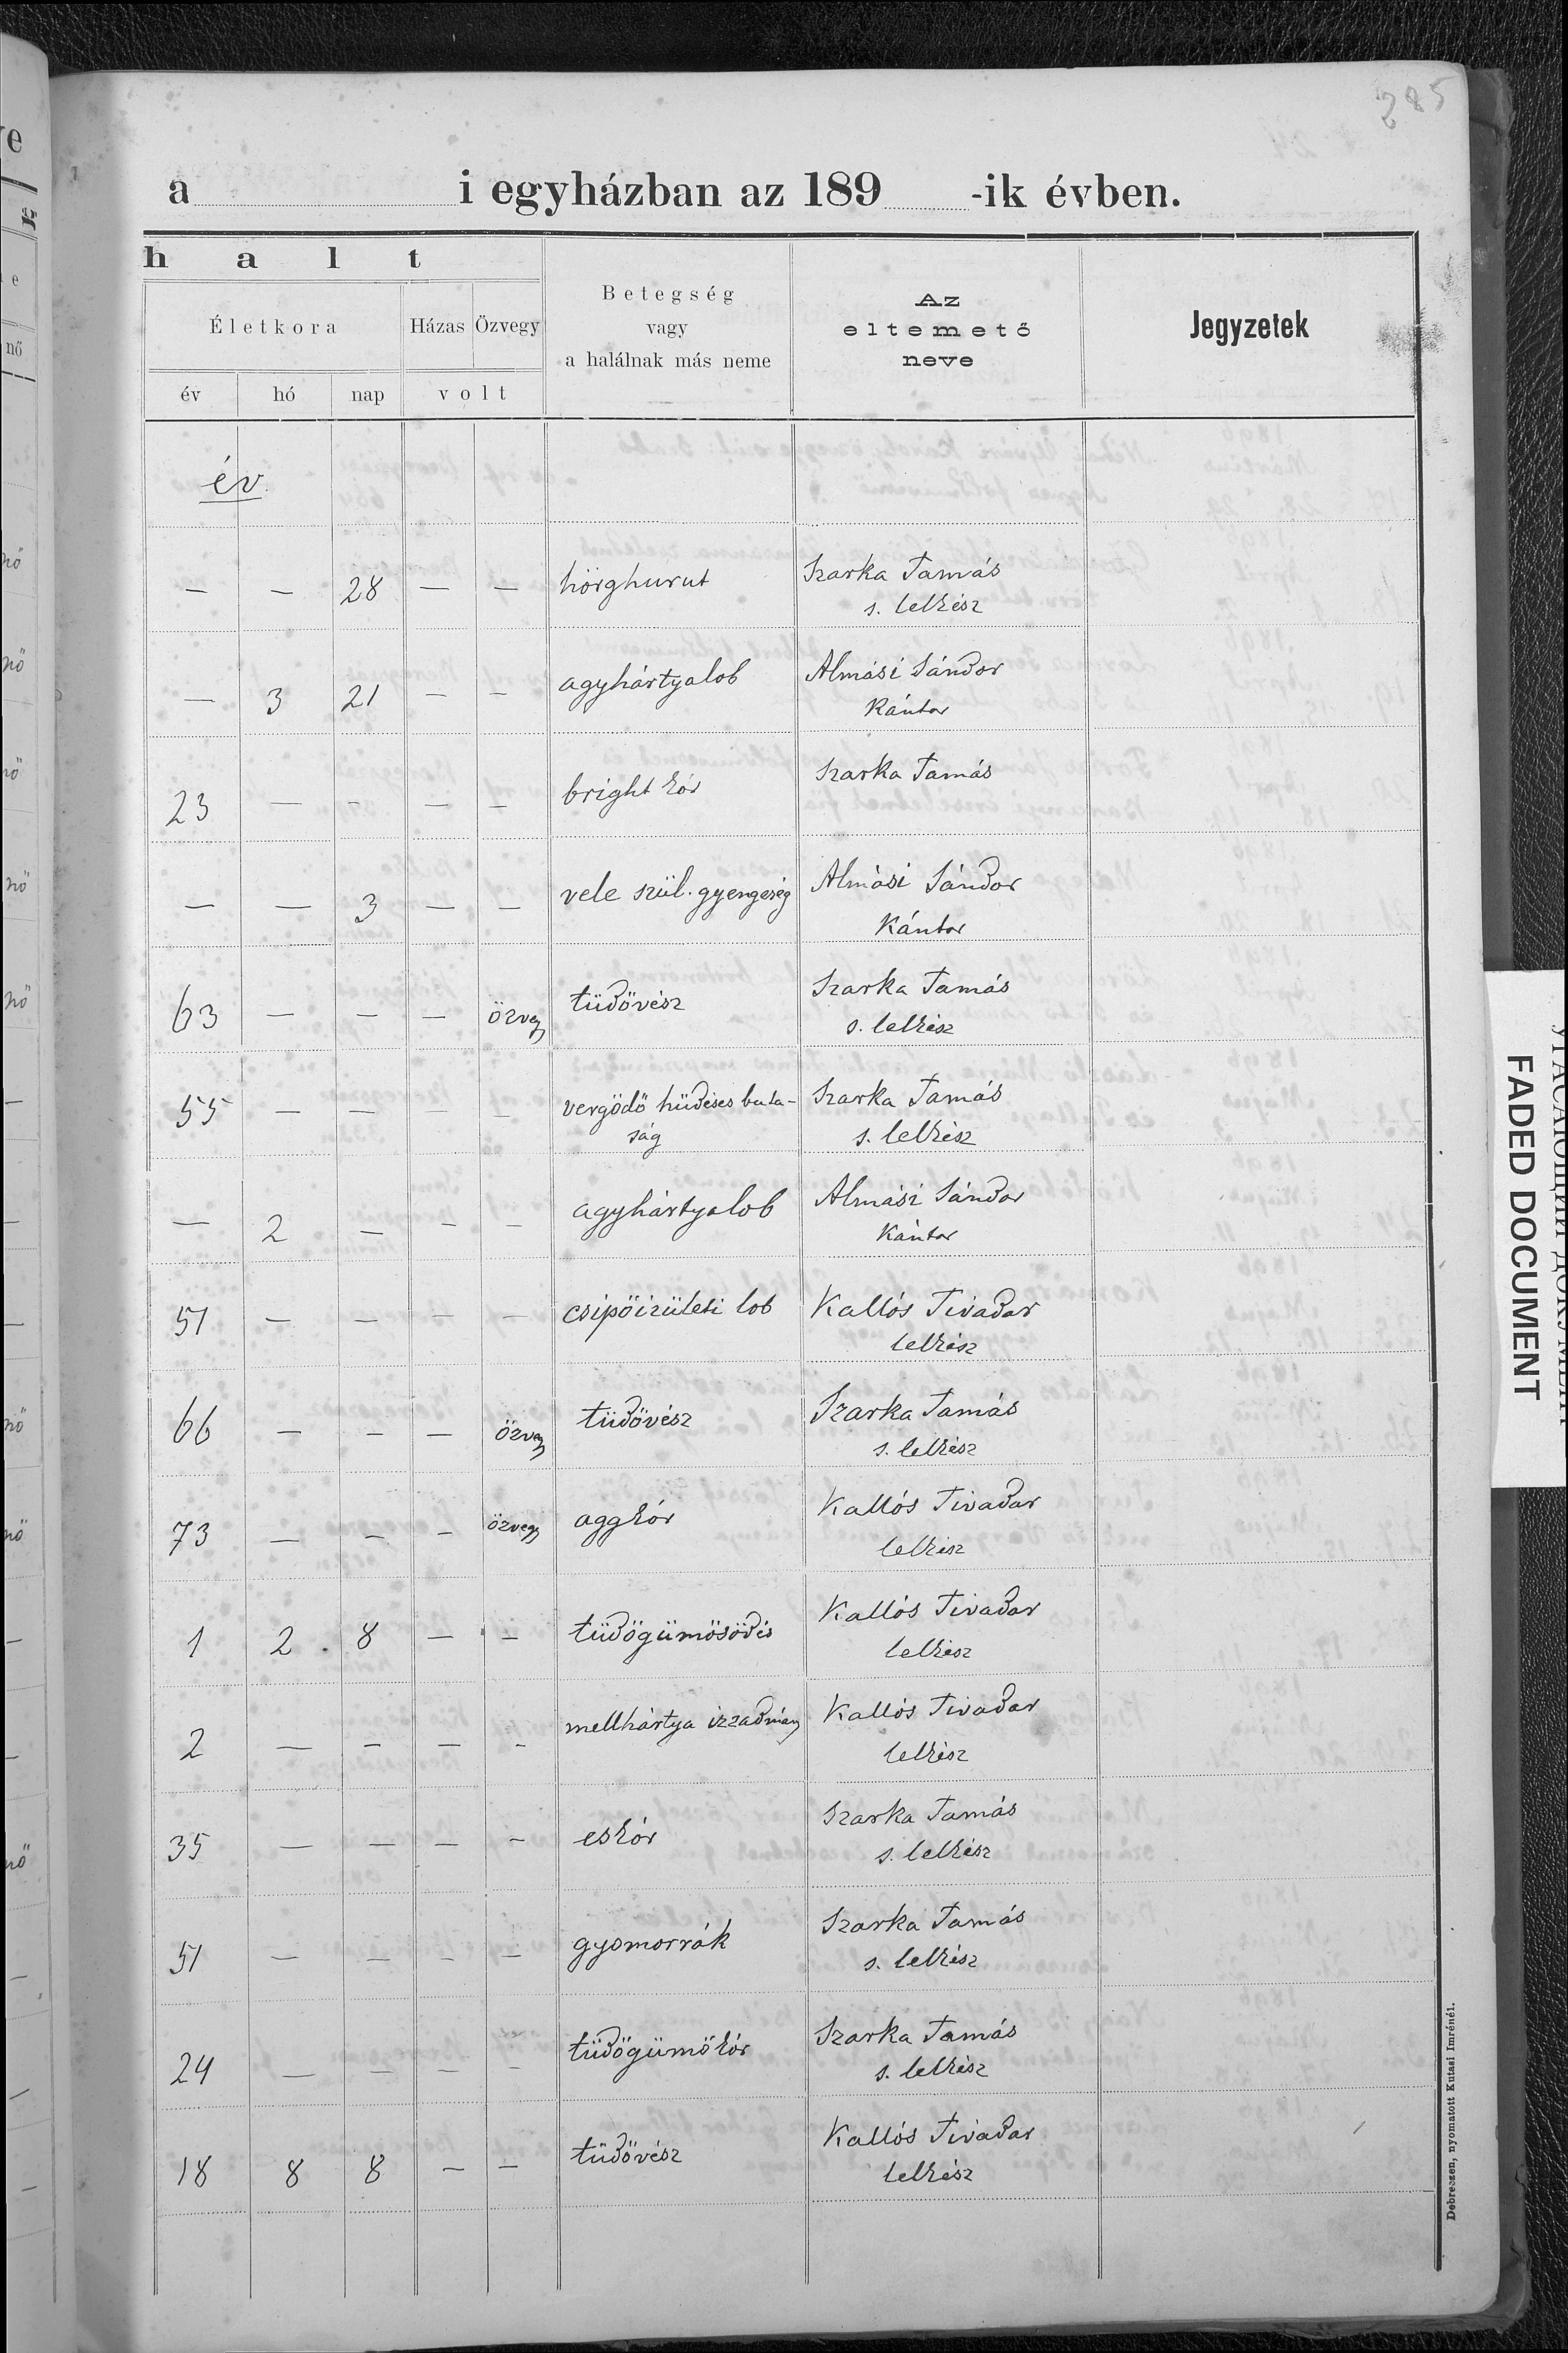 285
a i egyházban az 189 -ik évben.
h a l t
Életkora Házas Özvegy Betegség vagy a halálnak más neme Az eltemető neve Jegyzetek
év hó nap volt
év
— — 28 — — hörghurut Szarka Tamás
s. lelkész
— 3 21 — — agyhártyalob Almási Sándor
Kántor
23 — — — — bright kór Szarka Tamás
— — 3 — — vele szül. gyengeség Almási Sándor
Kántor
63 — — — özvegy tüdővész Szarka Tamás
s. lelkész
55 — — — — vergődő hüdéses buta- Szarka Tamás
ság s. lelkész
— 2 — — — agyhártyalob Almási Sándor
Kántor
51 — — — — csipőizületi lob Kallós Tivadar
lelkész
66 — — — özvegy tüdővész Szarka Tamás
s. lelkész
73 — — — özvegy aggkór Kallós Tivadar
lelkész
1 2 8 — — tüdőgümősödés Kallós Tivadar
lelkész
2 — — — — mellhártya izzadmány Kallós Tivadar
lelkész
35 — — — — eskór Szarka Tamás
s. lelkész
51 — — — — gyomorrák Szarka Tamás
s. lelkész
24 — — — — tüdőgümőkór Szarka Tamás
s. lelkész
18 8 8 — — tüdővész Kallós Tivadar
lelkész
Debreczen, nyomatott Kutasi Imrénél.
FADED DOCUMENT